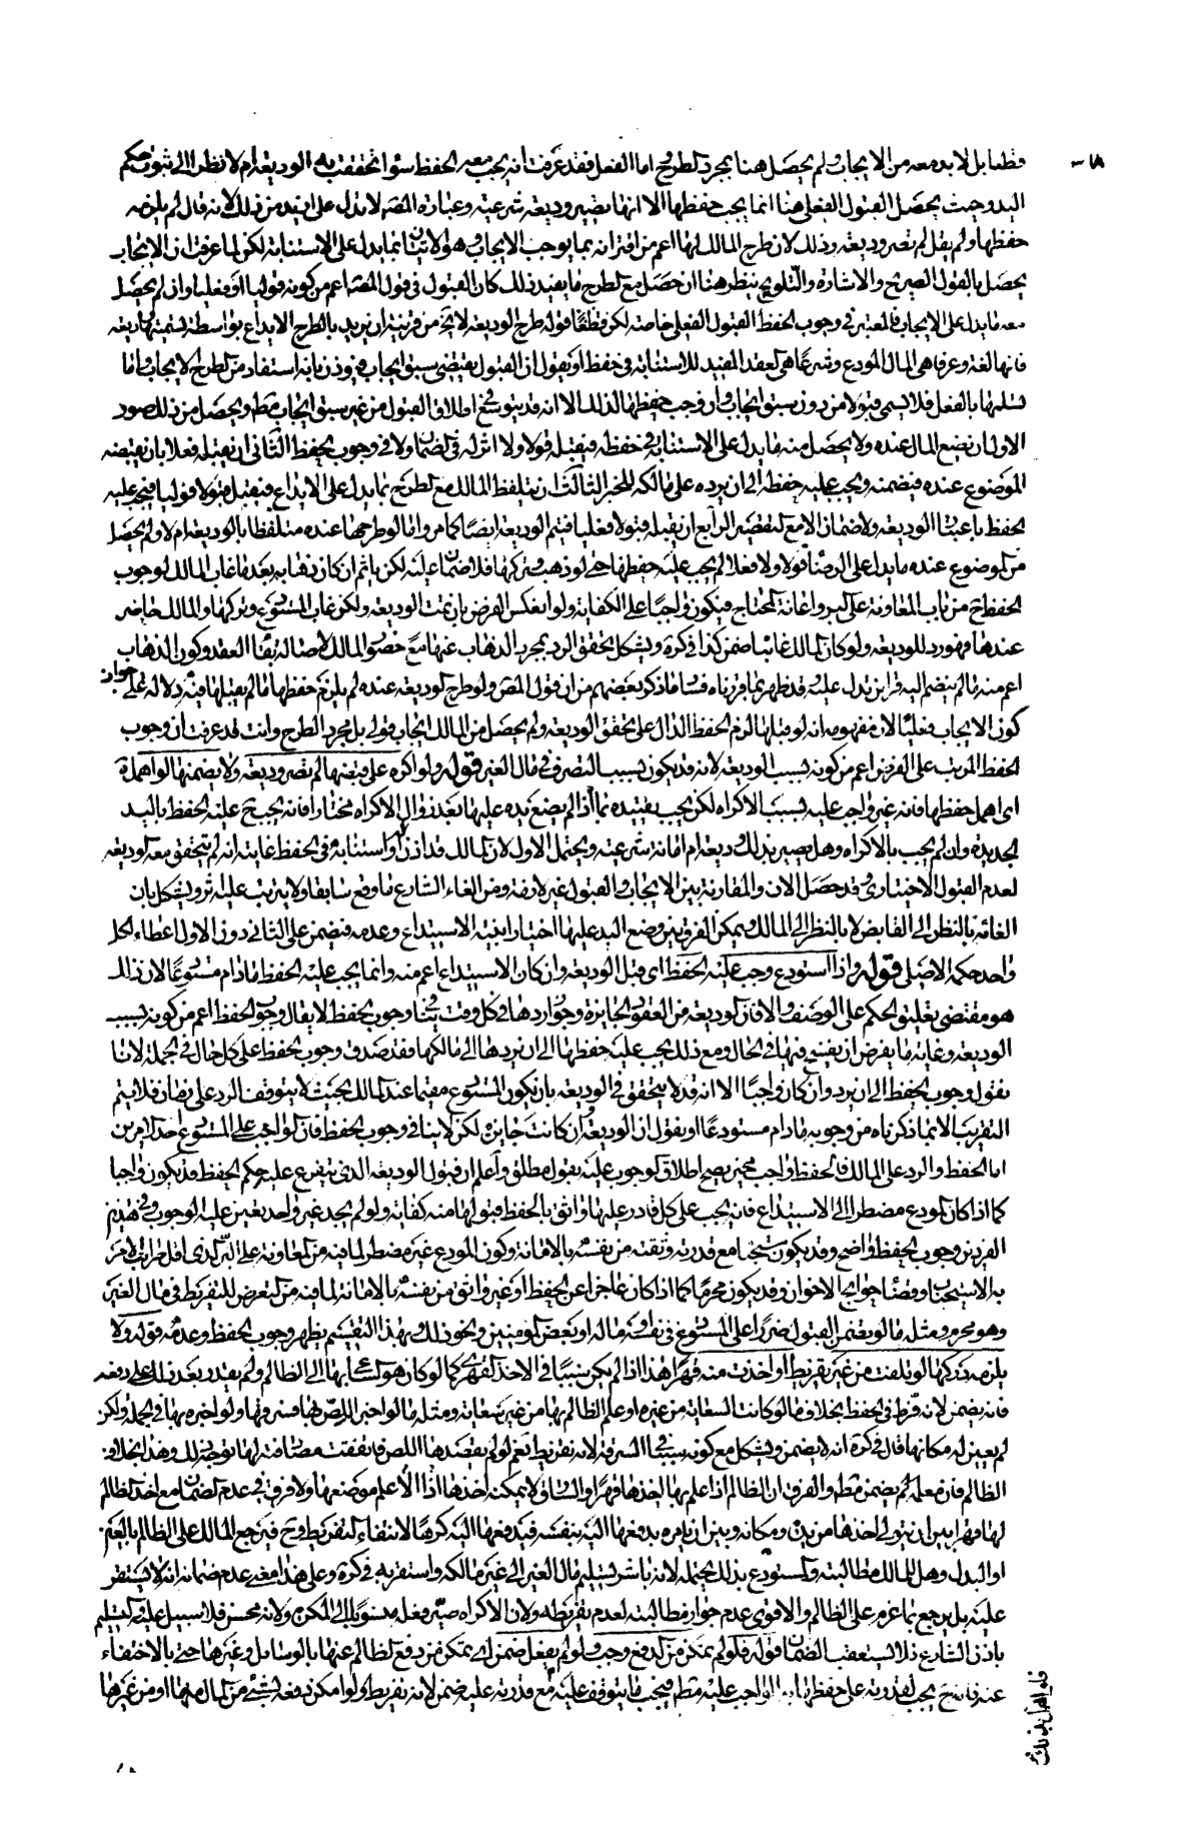 قطعا بل لا بد معه من الايجاب ولم يحصل هنا بمجرد الطرح اما الفعل فقد عرفت انه يجب معه الحفظ سواء تحققت به الوديعة ام لا نظرا الى ثبوت حكم
اليد وحيث يحصل القبول الفعلي هنا انما يجب حفظها الا انها تصير وديعة شرعية وعبارة المصـ لا تدل على ازيد من ذلك لانه قال لم يلزمه
حفظها ولم يقل لم تصر وديعة وذلك لان طرح المالك لها اعم من اقترانه بما يوجب الايجاب وهو الاتيان بما يدل على الاستنابة لكن لما عرفت ان الايجاب
يحصل بالقول الصريح والاشارة والتلويح ينظر هنا ان حصل مع الطرح ما يفيد ذلك كان القبول في قول المصـ اعم من كونه قوليا او فعليا وان لم يحصل
معه ما يدل على الايجاب فالمعتبر في وجوب الحفظ القبول الفعلي خاصة لكن قطعا قوله طرح الوديعة لا يخ من قرينة ان يريد بالطرح الايداع بواسطة تسميتها وديعة
فانها لغة وعرفا هي المال المودع وشرعا هي العقد المفيد للاستنابة في الحفظ او نقول ان القبول يقتضي سبق ايجاب فيؤذن بانه استفاد من الطرح الايجاب واما
تسلمها بالفعل فلا يسمى قبولا من دون سبق ايجاب وان وجب حفظها لذلك الا انه قد يتوسع في اطلاق القبول من غير سبق ايجاب مطم ويحصل من ذلك صور
الاول ان يضع المال عنده ولا يحصل منه ما يدل على الاستنابة في حفظه فيقبله قولا ولا اثر له في الضمان ولا في وجوب الحفظ الثاني ان يقبله فعلا بان يقبضه
الموضوع عنده فيضمنه ويجب عليه حفظه الى ان يرده على مالكه للخبر الثالث ان يتلفظ المالك مع الطرح بما يدل على الايداع فيقبل قبولا قوليا فيجب عليه
الحفظ باعتبار الوديعة ولا ضمان الا مع التقصير الرابع ان يقبله قبولا فعليا فيتم الوديعة ايضا كما مر واما لو طرحها عنده متلفظا بالوديعة ام لا ولم يحصل
من الموضوع عنده ما يدل على الرضا قولا ولا فعلا لم يجب عليه حفظها حتى لو ذهب وتركها فلا ضمان عليه لكن ياثم ان كان ذهابه بعد ما غاب المالك لوجوب
الحفظ ح من باب المعاونة على البر واعانة المحتاج فيكون واجبا على الكفاية ولو انعكس الفرض بان تمت الوديعة ولكن غاب المستودع وتركها والمالك حاضر
عندها فهو رد للوديعة ولو كان المالك غائبا ضمن كذا في كرة ويشكل تحقق الرد بمجرد الذهاب عنها مع حضور المالك لاصالة بقاء العقد وكون الذهاب
اعم منه ما لم ينضم اليه قرائن تدل عليه وقد ظهر بما قررناه فساد ما ذكر بعضهم من ان قول المصـ ولو طرح الوديعة عنده لم يلزم حفظها ما لم يقبلها فيه دلالة على جواز
كون الايجاب فعليا لان مفهومه انه لو قبلها لزم الحفظ الدال على تحقق الوديعة ولم يحصل من المالك ايجاب قولي بل مجرد الطرح وانت قد عرفت ان وجوب
الحفظ المرتب على الفرض اعم من كونه بسبب الوديعة لانه قد يكون بسبب التصرف في مال الغير قوله ولو اكره على قبضها لم تصر وديعة ولا يضمنها لو اهملها
اى اهمل حفظها فانه غير واجب عليه بسبب الاكراه لكن يجب تقييده بما اذا لم يضع يده عليها بعد زوال الاكراه مختارا فانه يجب ح عليه الحفظ باليد
الجديدة وان لم يجب بالاكراه وهل يصير بذلك وديعة ام امانة شرعية ويحتمل الاول لان المالك قد اذن واستنابه في الحفظ غايته انه لم يتحقق معه الوديعة
لعدم القبول الاختياري وقد حصل الان والمقارنة بين الايجاب والقبول غير لازمة ومن الغاء الشارع ما وقع سابقا ولا يترتب عليه اثر ويشكل بان
الغائه بالنظر الى القابض لا بالنظر الى المالك ويمكن الفرق بين وضع اليد عليها اختيارا بنية الاستيداع وعدمه فيضمن على الثاني دون الاول اعطاء لكل
واحد حكمه الاصلي قوله واذا استودع وجب عليه الحفظ اى قبل الوديعة وان كان الاستيداع اعم منه وانما يجب عليه الحفظ ما دام مستودعا لان ذلك
هو مقتضى تعليق الحكم على الوصف والا فان الوديعة من العقود الجائزة وجواز ردها في كل وقت ينافي وجوب الحفظ لا يقال وجوب الحفظ اعم من كونه بسبب
الوديعة وغايته ما يفرض ان يفسخ فيها في الحال ومع ذلك يجب عليه حفظها الى ان يردها الى مالكها فقد صدق وجوب الحفظ على كل حال في الجملة لانا
نقول وجوب الحفظ الى ان يرد وان كان واجبا الا انه قد لا يتحقق في الوديعة بان يكون المستودع مقيما عند المالك بحيث لا يتوقف الرد على زمان فلا يتم
التقريب الا بما ذكرناه من وجوبه ما دام مستودعا او نقول ان الوديعة وان كانت جائزة لكن لا ينافي وجوب الحفظ فان الواجب على المستودع احد الامرين
اما الحفظ والرد على المالك فالحفظ واجب مخير يصح اطلاق الوجوب عليه بقول مطلق واعلم ان قبول الوديعة الذي يتفرع عليه حكم الحفظ قد يكون واجبا
كما اذا كان المودع مضطرا الى الاستيداع فانه يجب على كل قادر عليها واثق بالحفظ قبولها منه كفاية ولو لم يجد غير واحد تعين عليه الوجوب وفي هذين
الفردين وجوب الحفظ واضح وقد يكون مستحبا مع قدرته وثقته من نفسه بالامانة وكون المودع غير مضطر لما فيه من المعاونة على البر الذي اقل مراتب الامر
به الاستحباب وقضاء حوايج الاخوان وقد يكون محرما كما اذا كان عاجزا عن الحفظ او غير واثق من نفسه بالامانة لما فيه من التعرض للتفريط في مال الغير
وهو محرم ومثله ما لو تضمن القبول ضررا على المستودع في نفسه او ماله او بعض المؤمنين ونحو ذلك وبهذا التقسيم يظهر وجوب الحفظ وعدمه قوله ولا
يلزمه دركها لو تلفت من غير تفريط او اخذت منه قهرا هذا اذا لم يكن سببا في الاخذ القهري كما لو كان هو الساعي بها الى الظالم ولم يقدر بعد ذلك على دفعه
فانه يضمن لانه فرط في الحفظ بخلاف ما لو كانت السعاية من غيره او علم الظالم بها من غير سعاية ومثله ما لو اخبر اللص بها فسرقها ولو اخبره بها في الجملة ولكن
لم يعين له مكانها قال في كرة انه لا يضمن ويشكل مع كونه سببا في السرقة لانه تفريط نعم لو لم يقصدها اللص فاتفقت مصادفته لها توجه ذلك وهذا بخلاف
الظالم فان فعله لم يضمن مطم والفرق ان الظالم اذا علم بها اخذها قهرا والسارق لا يمكنه اخذها الا اذا علم موضعها ولا فرق في عدم الضمان مع اخذ الظالم
لها قهرا بين ان يتولى اخذها من يده ومكانه وبين ان يامره بدفعها اليه بنفسه فيدفعها اليه كرها لانتفاء التفريط وح فيرجع المالك على الظالم بالعين
او البدل وهل للمالك مطالبته المستودع بذلك يحتمله لانه باشر تسليم مال الغير الى غير مالكه واستقربه في كرة وعلى هذا معنى عدم ضمانه انه لا يستقر
عليه بل يرجع بما غرم على الظالم والاقوى عدم جواز مطالبته لعدم تفريطه ولان الاكراه صير فعله منسوبا الى المكره ولانه محسن فلا سبيل عليه والتسليم
باذن الشارع فلا يستعقب الضمان قوله فلو لم تمكن من الدفع وجب ولو لم يفعل ضمن اى تمكن من دفع الظالم عنها بالوسايل وغيرها حتى بالاختفاء
عنه فانه ح يجب لقدرته على حفظها به الواجب عليه مطم فيجب ما يتوقف عليه مع قدرته عليه ضمن لانه تفريط ولو امكن دفعه بشئ من المال منها او من غيرها
فلو اهمل بذلك